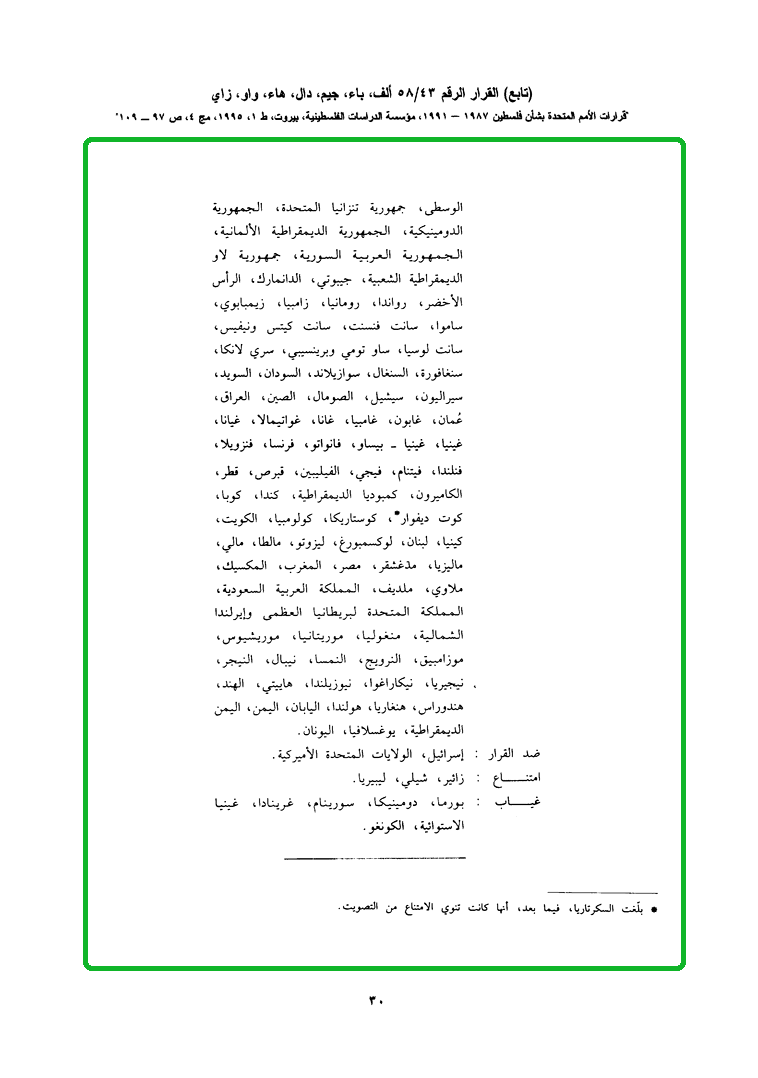 (تابع) القرار الرقم ٥٨/٤٣ ألف، باء، جيم، دال، هاء، واو، زاي
"قرارات الأمم المتحدة بشأن فلسطين ١٩٨٧ – ١٩٩١، مؤسسة الدراسات الفلسطينية، بيروت، ط ١، ١٩٩٥، مج ٤، ص ٩٧ – ١٠٩"
الوسطى، جمهورية تنزانيا المتحدة، الجمهورية
الدومينيكية، الجمهورية الديمقراطية الألمانية،
الجمهورية العربية السورية، جمهورية لاو
الديمقراطية الشعبية، جيبوتي، الدانمارك، الرأس
الأخضر، رواندا، رومانيا، زامبيا، زيمبابوي،
ساموا، سانت فنسنت، سانت كيتس ونيفيس،
سانت لوسيا، ساو تومي وبرينسيبي، سري لانكا،
سنغافورة، السنغال، سوازيلاند، السودان، السويد،
سيراليون، سيشيل، الصومال، الصين، العراق،
عُمان، غابون، غامبيا، غانا، غواتيمالا، غيانا،
غينيا، غينيا ـ بيساو، فانواتو، فرنسا، فنزويلا،
فنلندا، فيتنام، فيجي، الفيليبين، قبرص، قطر،
الكاميرون، كمبوديا الديمقراطية، كندا، كوبا،
كوت ديفوار*، كوستاريكا، كولومبيا، الكويت،
كينيا، لبنان، لوكسمبورغ، ليزوتو، مالطا، مالي،
ماليزيا، مدغشقر، مصر، المغرب، المكسيك،
ملاوي، ملديف، المملكة العربية السعودية،
المملكة المتحدة لبريطانيا العظمى وإيرلندا
الشمالية، منغوليا، موريتانيا، موريشيوس،
موزامبيق، النرويج، النمسا، نيبال، النيجر،
نيجيريا، نيكاراغوا، نيوزيلندا، هاييتي، الهند،
هندوراس، هنغاريا، هولندا، اليابان، اليمن، اليمن
الديمقراطية، يوغسلافيا، اليونان.
ضد القرار : إسرائيل، الولايات المتحدة الأميركية.
امتنـــــاع : زائير، شيلي، ليبيريا.
غيـــــاب : بورما، دومينيكا، سورينام، غرينادا، غينيا
الاستوائية، الكونغو.
● بلّغت السكرتاريا، فيما بعد، أنها كانت تنوي الامتناع من التصويت.
٣٠